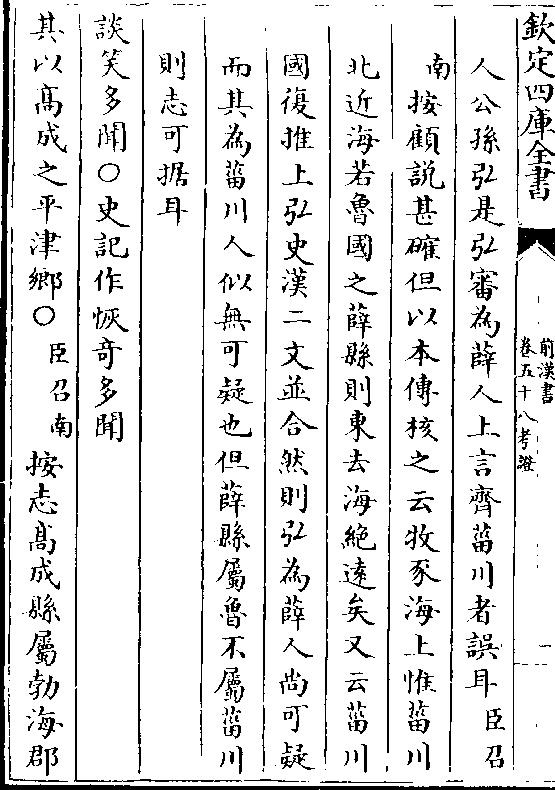 欽定四庫全書
前漢書
卷五十八考證
人公孫弘是弘審為薛人上言齊菑川者誤耳臣召
南按顧說甚確但以本傳核之云牧豕海上惟菑川
北近海若魯國之薛縣則東去海絶遠矣又云菑川
國復推上弘史漢二文並合然則弘為薛人尚可疑
而其為菑川人似無可疑也但薛縣屬魯不屬菑川
則志可据耳
談笑多聞○史記作恢竒多聞
其以髙成之平津鄉○臣召南按志髙成縣屬勃海郡